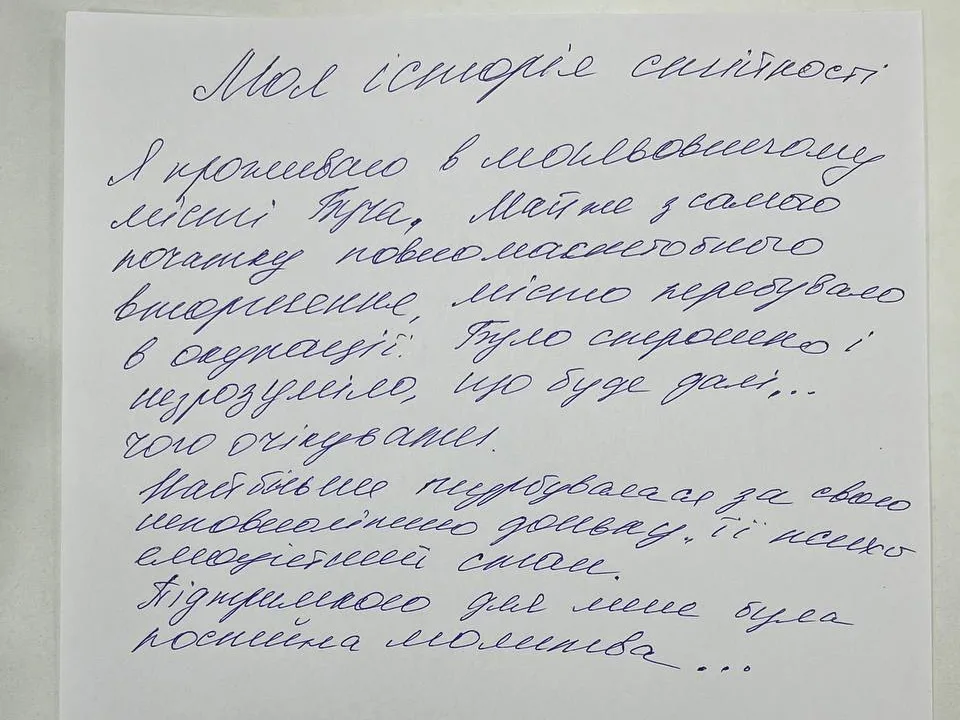 Моя історія стійкості
Я проживаю в мальовничому
місті Буча. Майже з самого
початку повномасштобного
вторгнення, місто перебувало
в окупації. Було страшно і
незрозуміло, що буде далі,...
чого очікувати.
Найбільше турбувалася за свою
неповнолітню доньку, її психо
емоційний стан.
Підтримкою для мене була
постійна молитва...